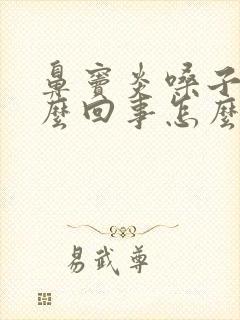 鼻窦炎嗓子
麼回事怎麼
易武尊